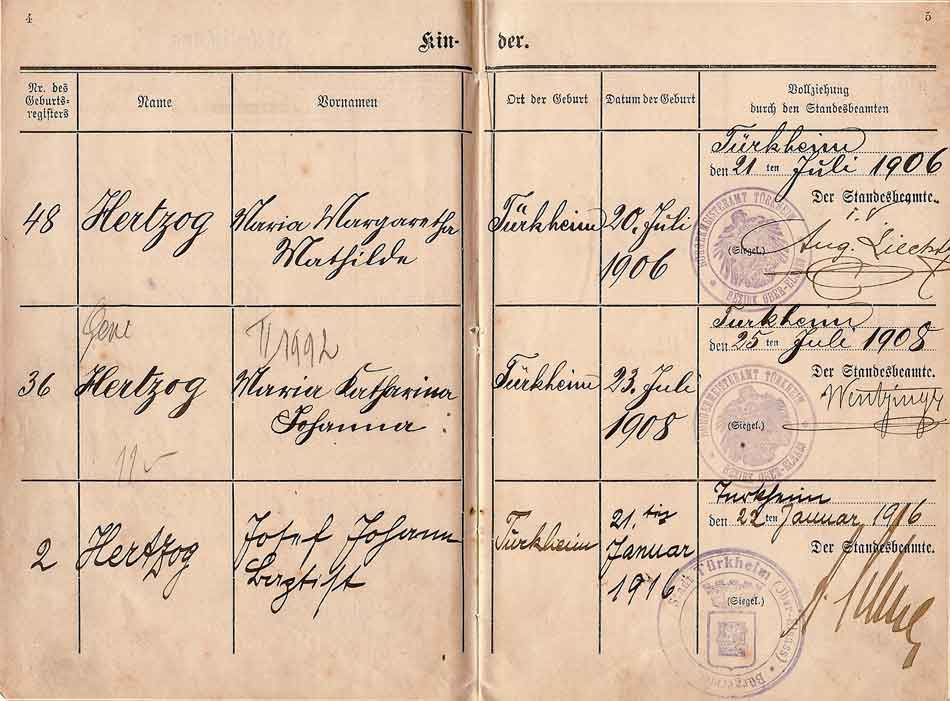 4
5
Kin-
der.
Nr. des
Geburts-
registers
Name
Vornamen
Ort der Geburt
Datum der Geburt
Vollziehung
durch den Standesbeamten
48
Hertzog
Maria Margaretha
Mathilde
Türkheim
20. Juli
1906
Türkheim
den 21 ten Juli 1906
Der Standesbeamte.
(Siegel.)
BÜRGERMEISTERAMT TÜRKHEIM
BEZIRK OBER-ELSASS
36
Hertzog
II 1992
Maria Katharina
Johanna
Türkheim
23. Juli
1908
Turkheim
den 25 ten Juli 1908
Der Standesbeamte.
(Siegel.)
BÜRGERMEISTERAMT TÜRKHEIM
BEZIRK OBER-ELSASS
2
Hertzog
Josef Johann
Baptist
Türkheim
21. ten
Januar
1916
Turkheim
den 22 ten Januar 1916
Der Standesbeamte.
(Siegel.)
Stadt Türkheim (Ober-Elsass)